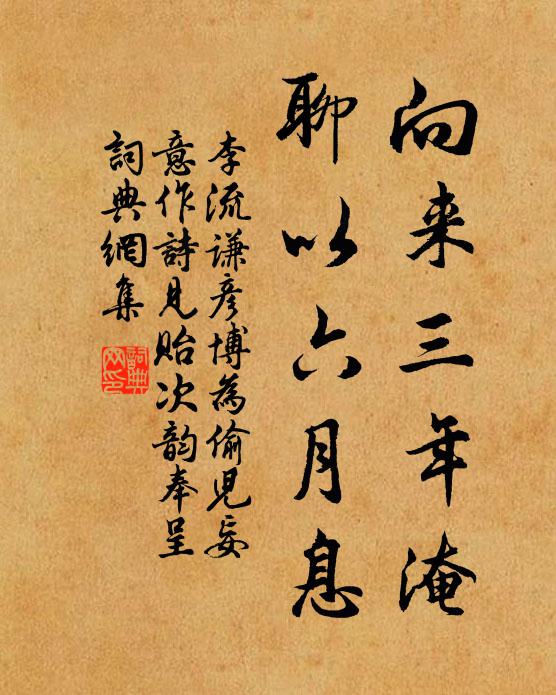 向来三年淹
聊以六月息
李流谦彦博為偷児妄
意作詩見貽次韵奉呈
詞典網集
詞典網印